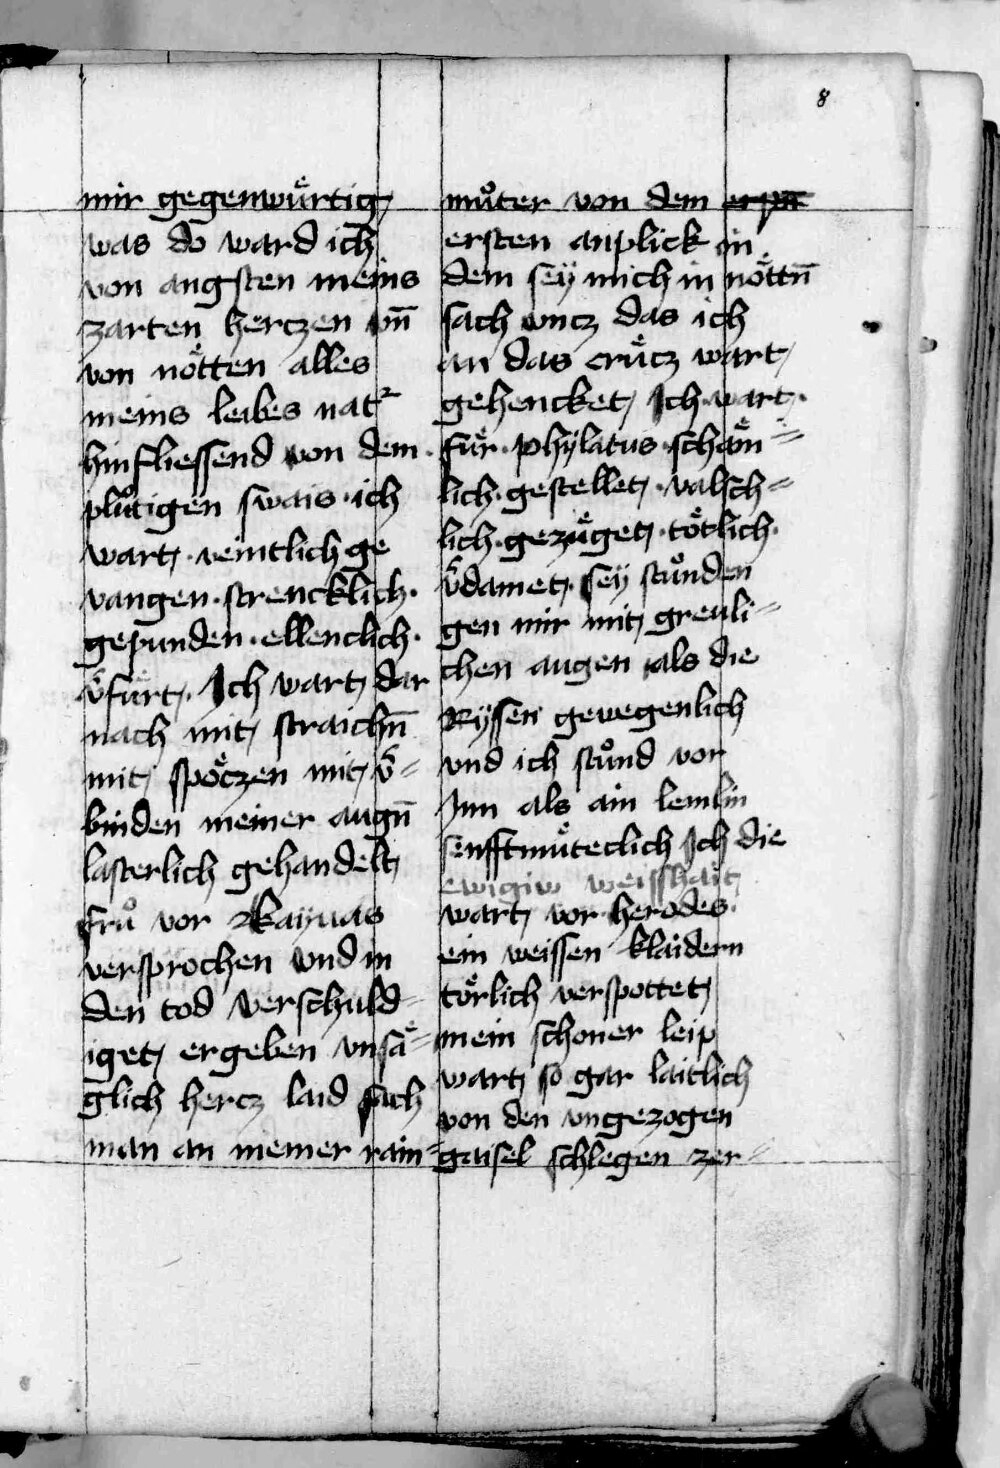 8
mir gegenwuͤrtig
was do ward ich
von angsten meins
zarten herczen vn̄
von noͤtten alles
meins leibes nat᷑
hinfliessend von dem ·
pluͦtigen swais · ich
wart · veintlich ge
vangen · strencklich ·
gepunden · ellenclich ·
v̄fuͤrt · Ich wart dar
nach mit straichn̄
mit spoͤczen mit v̄=
binden meiner augn̄
lasterlich gehandelt
fruͦ vor Kayuas
versprochen vnd in
den tod verschuld=
iget ergeben vnsaͤ=
glich hercz laid sach
man an meiner rain=
muͦter von dem
ersten anplick in
dem sey mich in noͤttn̄
sach vncz das ich
an das cruͤcz wart
gehencket Ich · wart ·
fuͤr · phylatus · schaͤm=
lich · gestellet · valsch=
lich · gezuͤget · toͤtlich ·
v̄damet · sey stuͦnden
gen mir mit greuli=
chen augen als die
Ryssen gevegenlich
vnd ich stuͦnd vor
Inn als ain lemlin
senfftmuͤteclich Ich die
ewigiw weisshait
wart vor herodes ·
ein weissen klaidern
toͤrlich verspottet
mein schoner leip
wart so gar laitlich
von den vngezogen
gaisel schlegen zer=